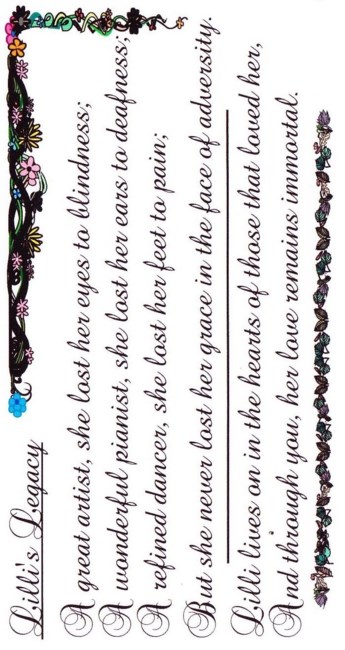 Lilli's Legacy
A great artist, she lost her eyes to blindness;
A wonderful pianist, she lost her ears to deafness;
A refined dancer, she lost her feet to pain;
But she never lost her grace in the face of adversity.
Lilli lives on in the hearts of those that loved her,
And through you, her love remains immortal.